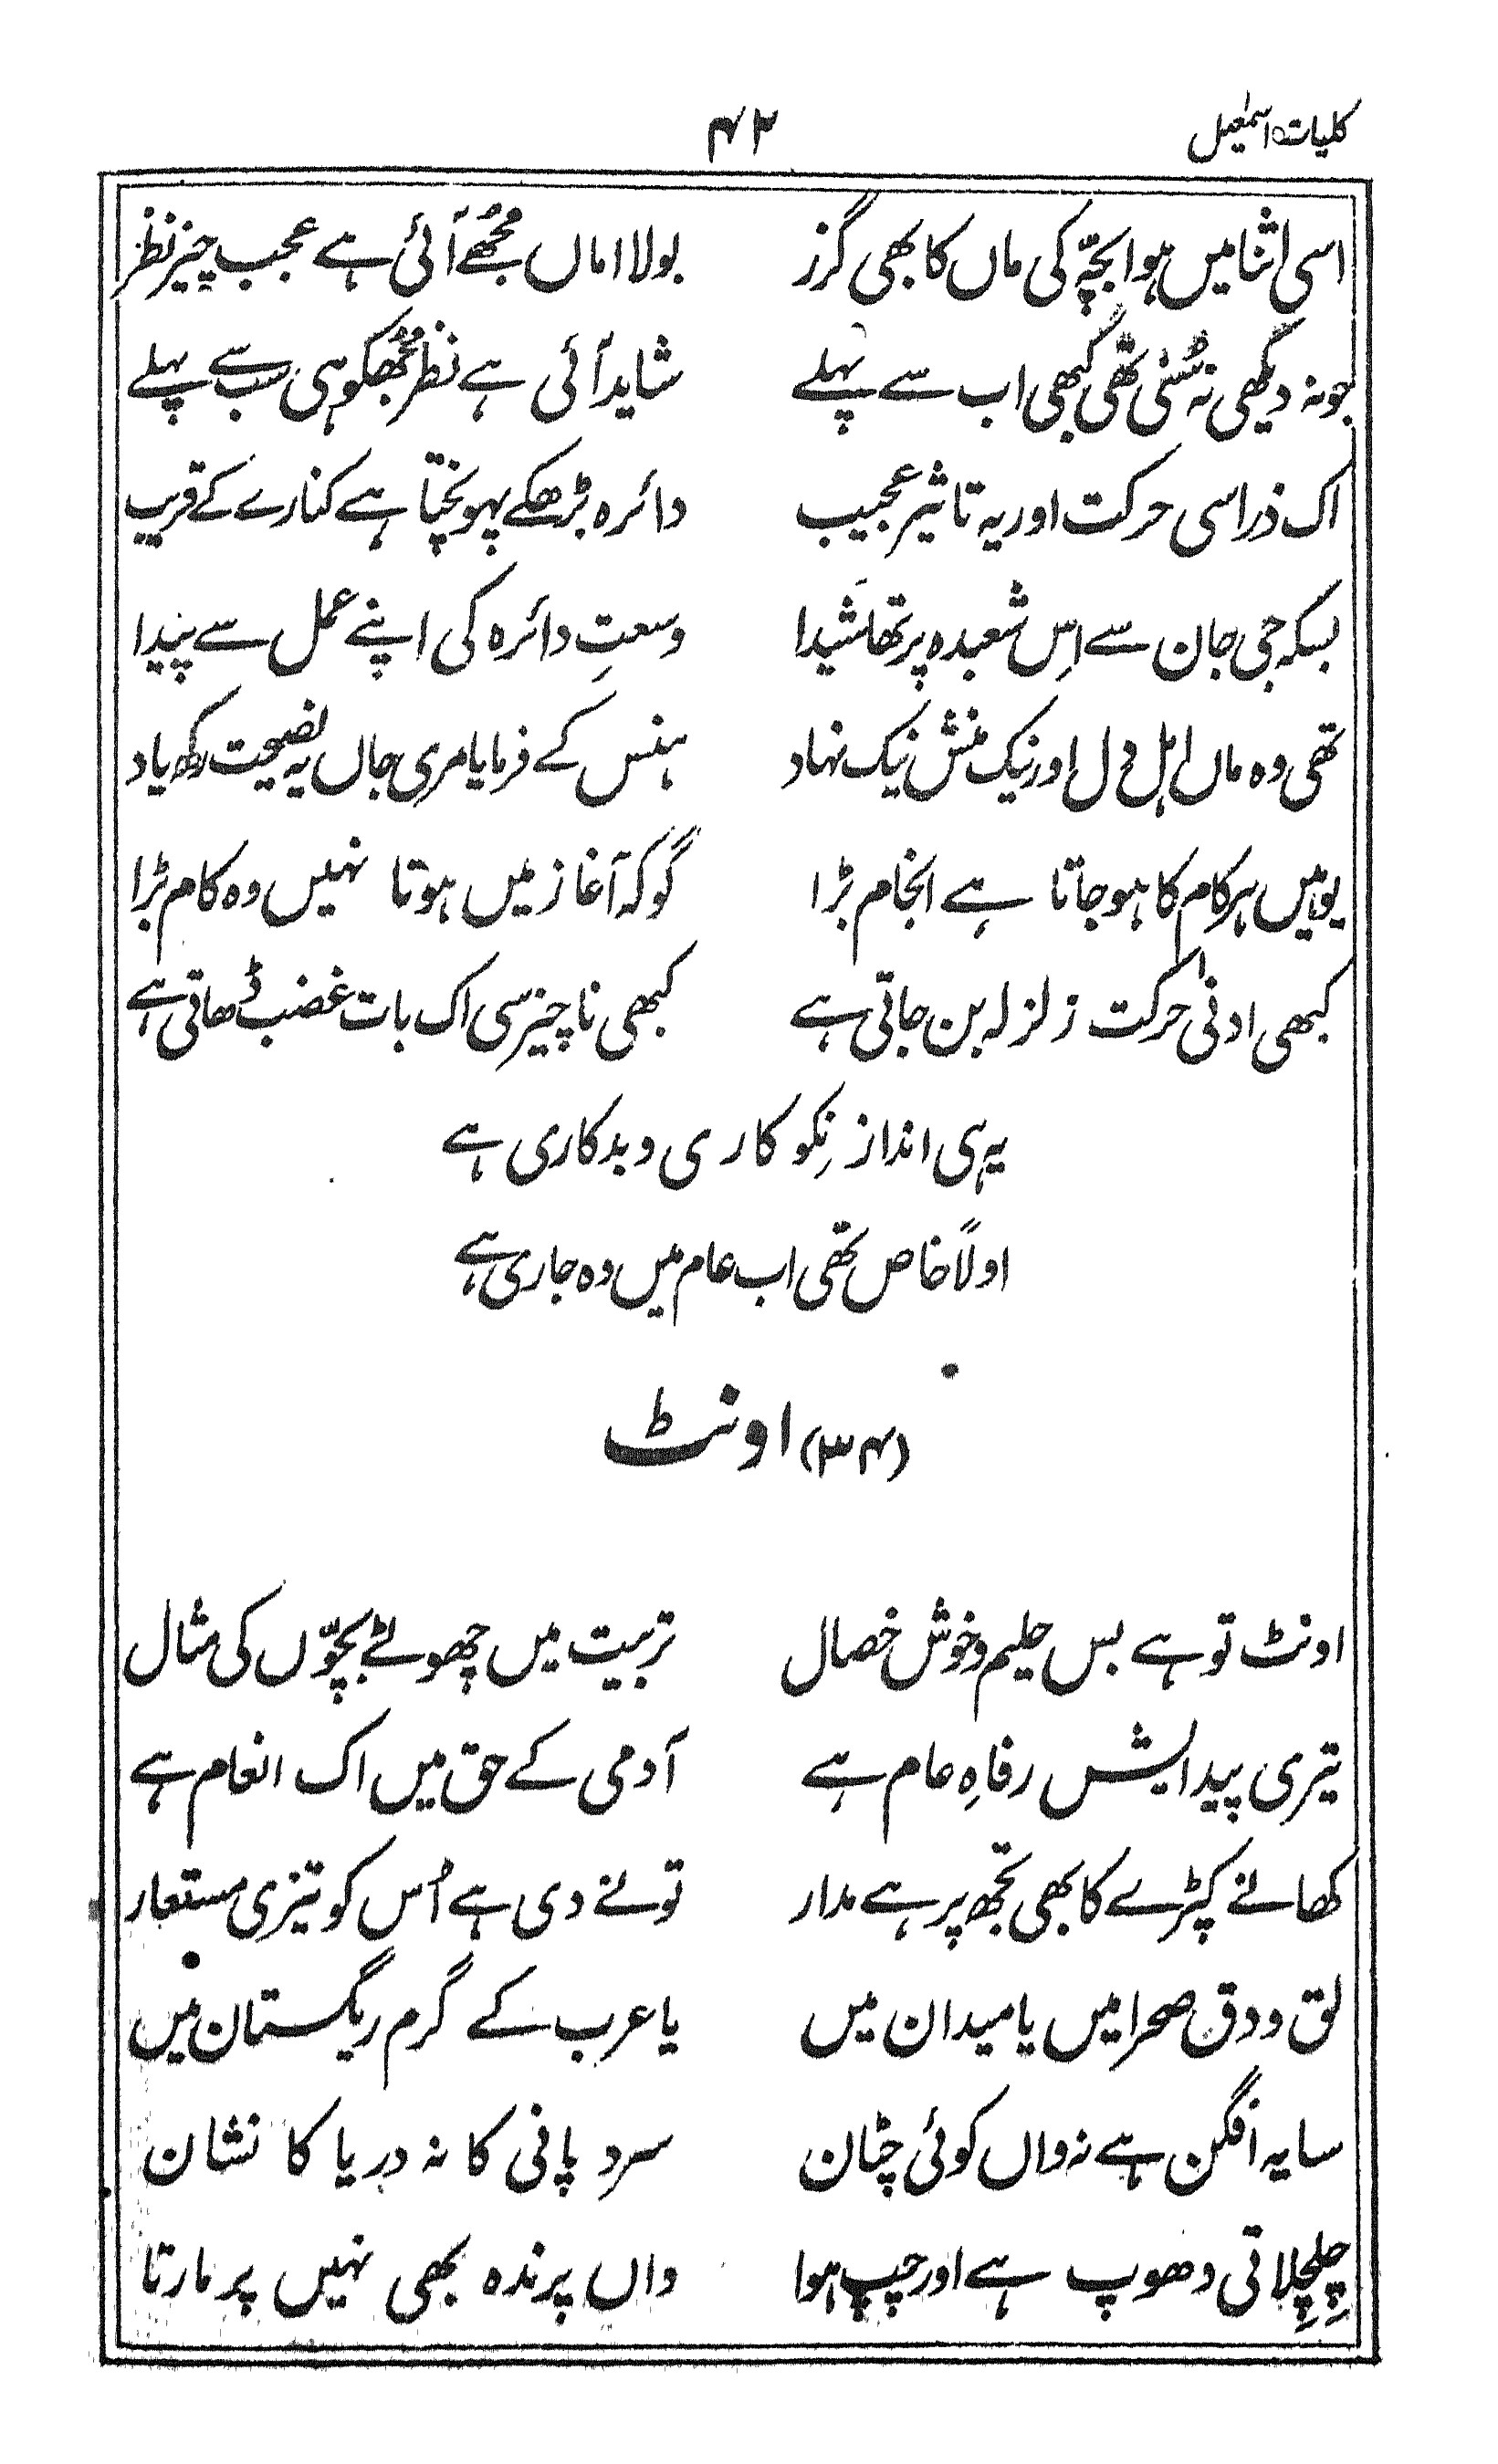 کلیات اسمٰعیل ۴۲
اسی اثنا میں ہوا بچّہ کی ماں کا بھی گزر بولا اماں مُجھے آئی ہے عجب چیز نظر
جو نہ دیکھی نہ سُنی تھی کبھی اب سے پہلے شاید آئی ہے نظر مُجھکو ہی سب سے پہلے
اک ذرا سی حرکت اور یہ تاثیر عجیب دائرہ بڑھکے پہونچتا ہے کنارے کے قریب
بسکہ جی جان سے اِس شعبدہ پر تھا شَیدا وسعتِ دائرہ کی اپنے عمل سے پیدا
تھی وہ ماں اہل دل اور نیک منش نیک نہاد ہنس کے فرمایا مری جاں یہ نصیحت رکھ یاد
یوہیں ہر کام کا ہو جاتا ہے انجام بڑا گو کہ آغاز میں ہوتا نہیں وہ کام بڑا
کبھی ادنیٰ حرکت زلزلہ بن جاتی ہے کبھی ناچیز سی اک بات غضب ڈھاتی ہے
یہ ہی انداز نِکو کاری و بدکاری ہے
اولاً خاص تھی اب عام میں وہ جاری ہے
(۳۴) اونٹ
اونٹ تو ہے بس حلیم و خوش خصال تربیت میں چھوٹے بچّوں کی مثال
تیری پیدایش رفاہِ عام ہے آدمی کے حق میں اک انعام ہے
کھانے کپڑے کا بھی تجھ پر ہے مدار تونے دی ہے اُس کو تیزی مستعار
لق و دق صحرا میں یا میدان میں یا عرب کے گرم ریگستان میں
سایہ افگن ہے نہ واں کوئی چٹان سرد پانی کا نہ دریا کا نشان
چِلچِلاتی دھوپ ہے اور چپ ہوا واں پرندہ بھی نہیں پر مارتا